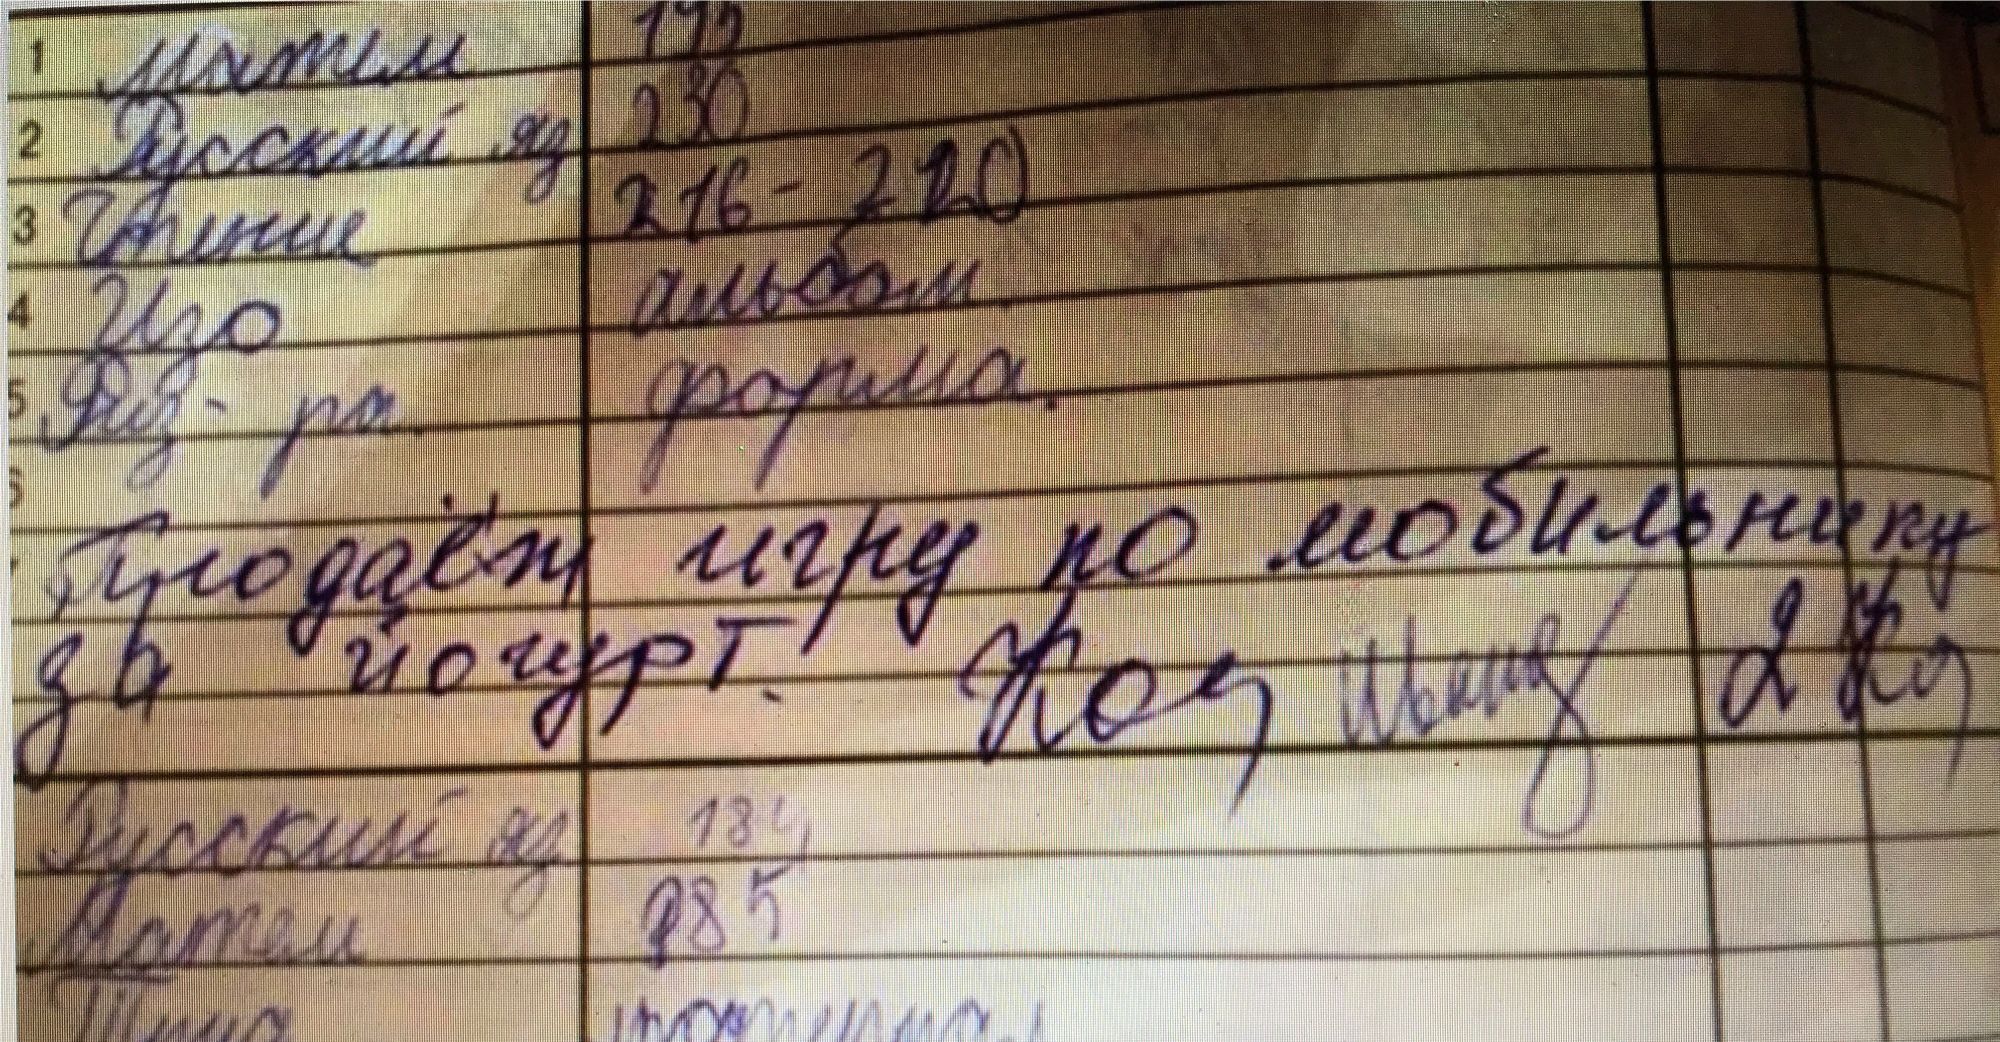 1 Матем
2 Русский яз 230
3 Чтение 216-220
4 Изо альбом
5 Физ-ра. форма.
Продаёт игру по мобильнику
за йогурт.
Русский яз 184
Матем 285